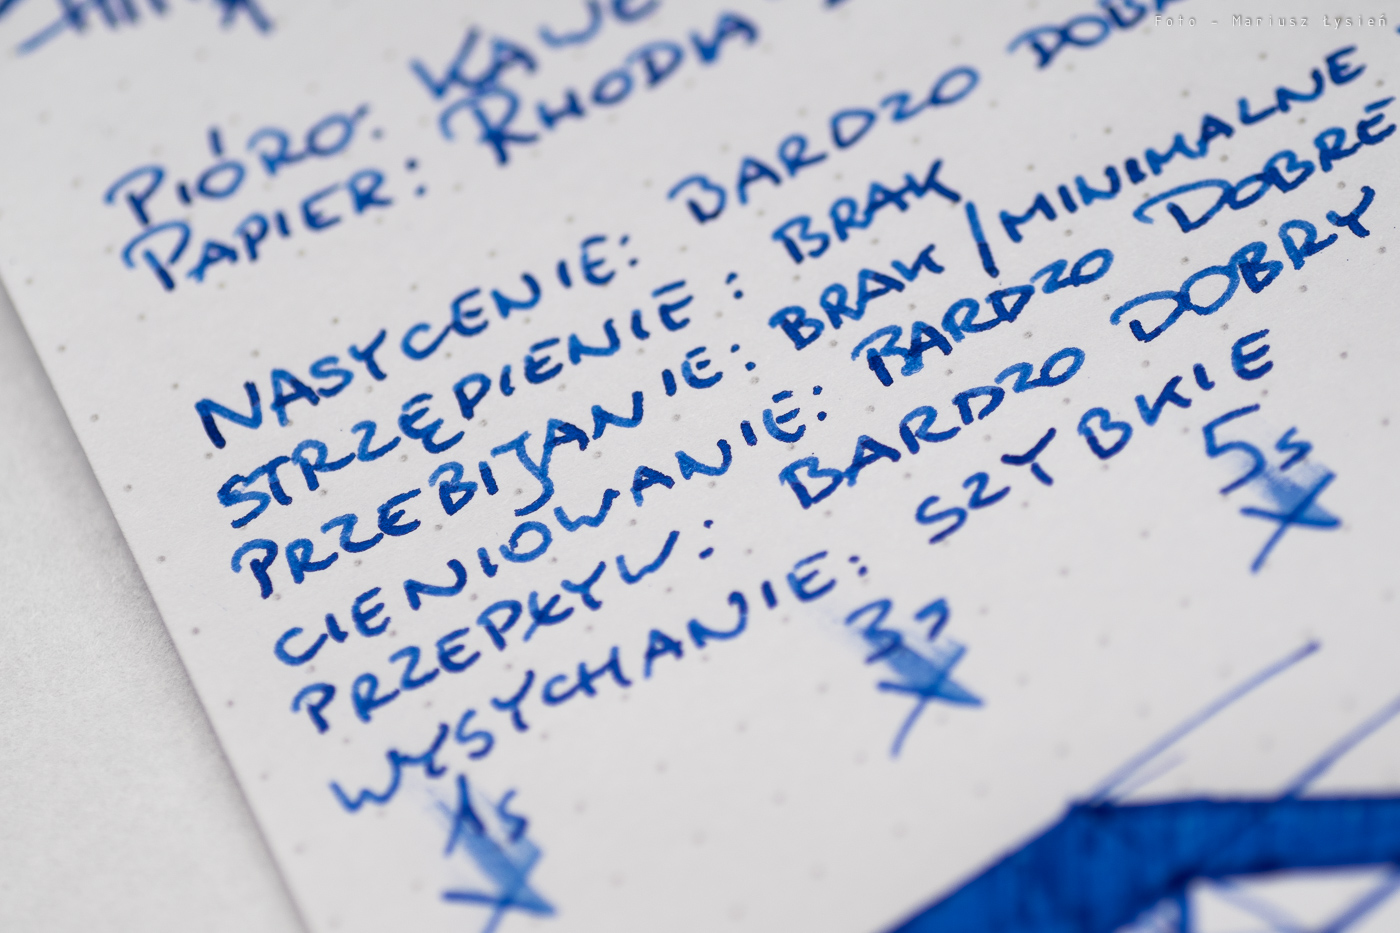 Foto - Mariusz Łysień
PIÓRO:
PAPIER: RHODIA
NASYCENIE: BARDZO
STRZĘPIENIE: BRAK
PRZEBIJANIE: BRAK/MINIMALNE
CIENIOWANIE: BARDZO DOBRE
PRZEPŁYW: BARDZO DOBRY
WYSYCHANIE: SZYBKIE
1s 3s 5s